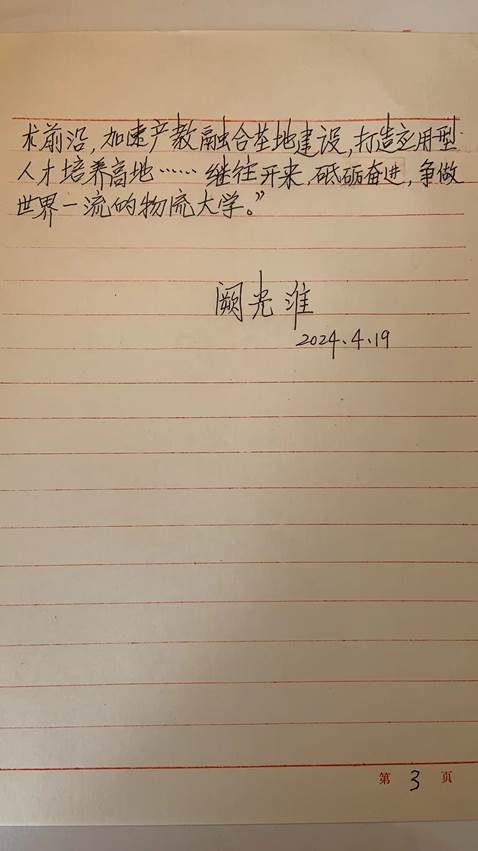 术前沿，加速产教融合基地建设，打造应用型
人才培养高地……继往开来，砥砺奋进，争做
世界一流的物流大学。”
阙光淮
2024.4.19
第 3 页